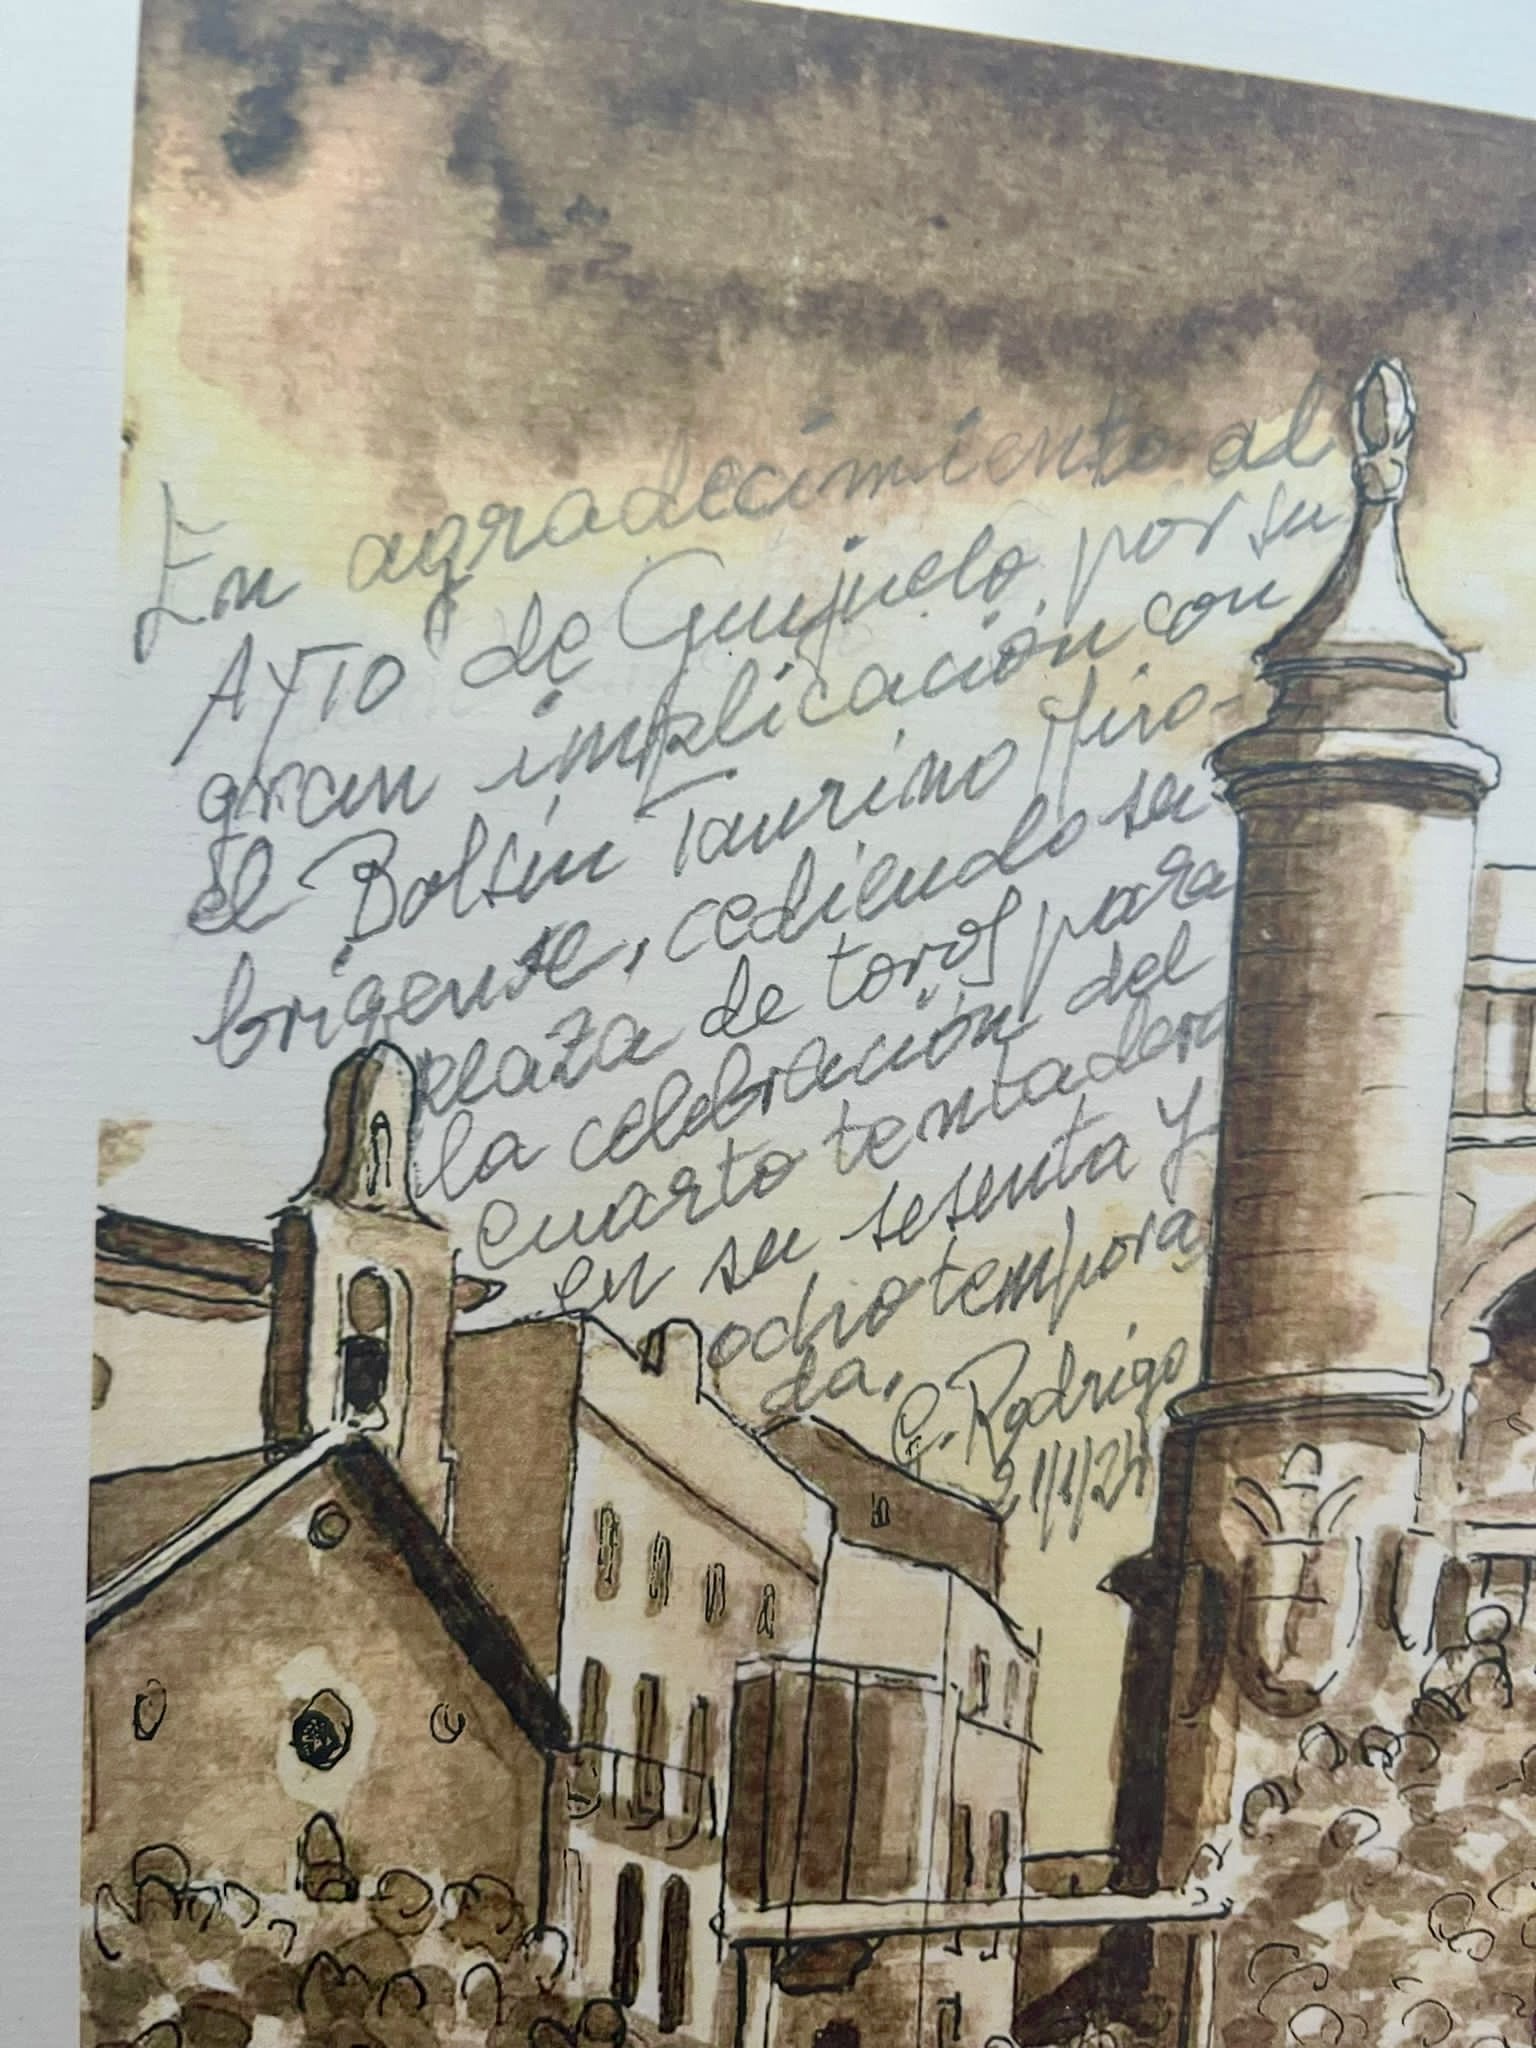 En agradecimiento al
AYTO de Guijuelo, por su
gran implicación con
el Bolsín Taurino Miro-
brigense, cediendo su
plaza de toros para
la celebración del
cuarto tentadero
en su sesenta y
ocho tempora
da.
C. Rodrigo
21/1/24